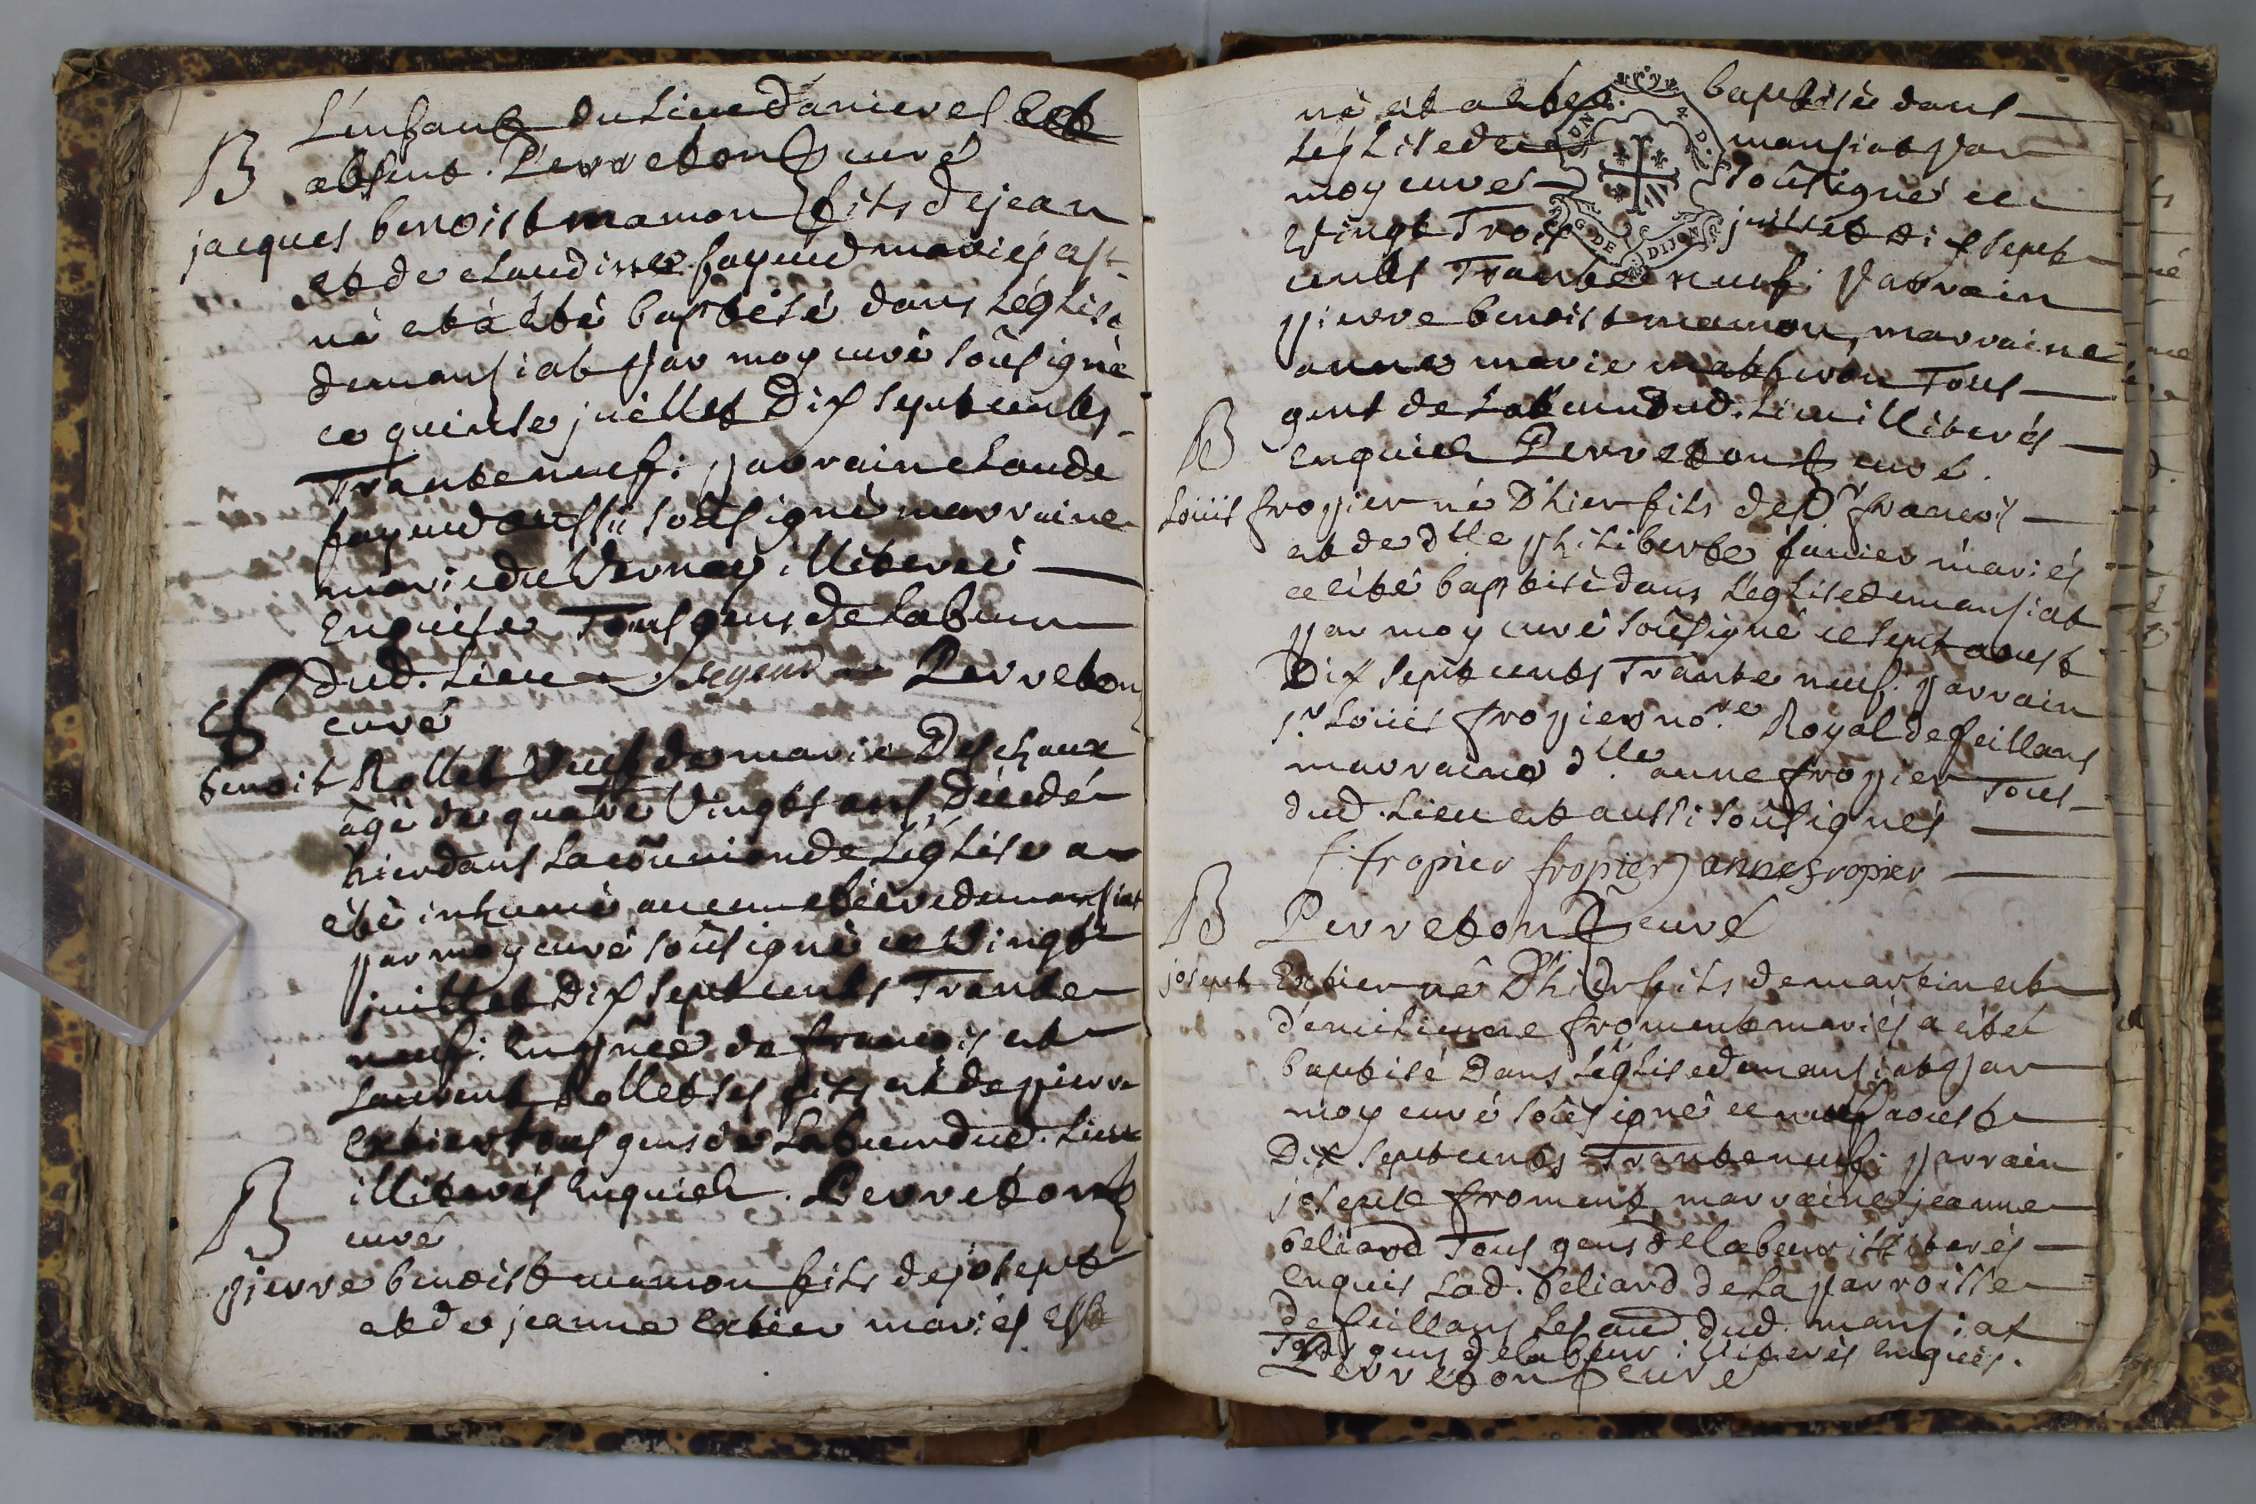 L'enfant du lieu d'anieres Est
absent. Perreton curé
B
jacques benoist mamon fils de jean
et de claudine fayend mariés est
né et a été baptisé dans L'église
demansiat par moy curé soûsigné
ce quinse juillet Dix sept cents
Trante neuf: parrain claude
fayend aussii soûsigné marraine
marie du Vernay illiterée
Enquise Tous gens de labeur
dud. Lieu fayend Perreton
curé
S
benoit Rollet Veuf de marie Deschaux
âgé de quatre Vingts ans, Décédé
hier dans La coũnion de L'église a
été inhumé au cimetière demansiat
par moy curé soûsigné ce Vingt
juillet Dix sept cents Trante
neuf: En pñce de françois et
Laurent Rollet ses fils et de pierre
Extier tous gens de Labeur dud. Lieu
illiterés Enquich. Perreton
curé
B
pierre benoist mamon fils de josept
et de jeanne Extier mariés Est
né et a été baptisé dans
L'église de mansiat par
moy curé soûsigné ce
Vingt Trois juillet Dix sept
cents Trante neuf: parrain
pierre benoist mamon, marraine
anne marie mathéron Tous
gens de Labeur dud. Lieu illiterés
Enquich Perreton curé.
UN 4 D. G. DE DIJON
B
Loüis fropier né D'hier fils de Sr. françois
et de dlle philiberte janier mariés
a été baptisé dans L'église demansiat
par moy curé soûsigné ce sept aoust
Dix sept cents Trante neuf: parrain
Sr. Loüis fropier nore. Royal de feillans
marraine dlle. anne fropier Tous
dud. Lieu et aussi soûsignés
f. fropier fropier anne fropier
Perreton curé
B
josept Extier né D'hier fils de martin et
d'emilienne froment mariés a été
baptisé Dans L'église demansiat par
moy curé soûsigné ce neuf aoust
Dix sept cents Trante neuf: parrain
josept froment, marraine jeanne
beliard Tous gens de labeur illiterés
Enquis Lad. beliard de La parroisse
de feillans Les au. dud. mansiat
Tous gens de labeur illiterés Enquis.
Perreton curé